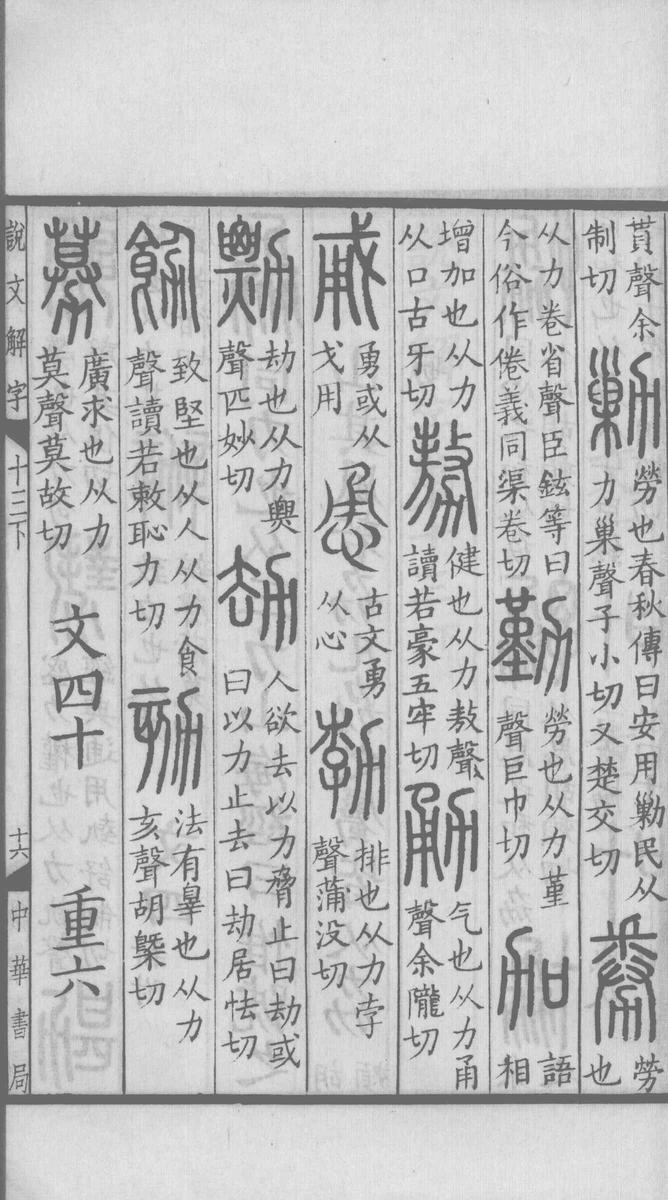 貰聲余
制切
勦
勞也春秋傳曰安用勦民从
力巢聲子小切又楚交切
券
勞
也
从力卷省聲臣鉉等曰
今俗作倦義同渠卷切
勤
勞也从力堇
聲巨巾切
加
語
相
增加也从力
从口古牙切
𠢕
健也从力敖聲
讀若豪五牢切
勇
气也从力甬
聲余隴切
㦷
勇或从
戈用
恿
古文勇
从心
勃
排也从力孛
聲蒲没切
勡
劫也从力𤐫
聲匹妙切
劫
人欲去以力脅止曰劫或
曰以力止去曰劫居怯切
飭
致堅也从人从力食
聲讀若敕恥力切
劾
法有辠也从力
亥聲胡槩切
募
廣求也从力
莫聲莫故切
文四十 重六
說文解字 十三下 十六 中華書局